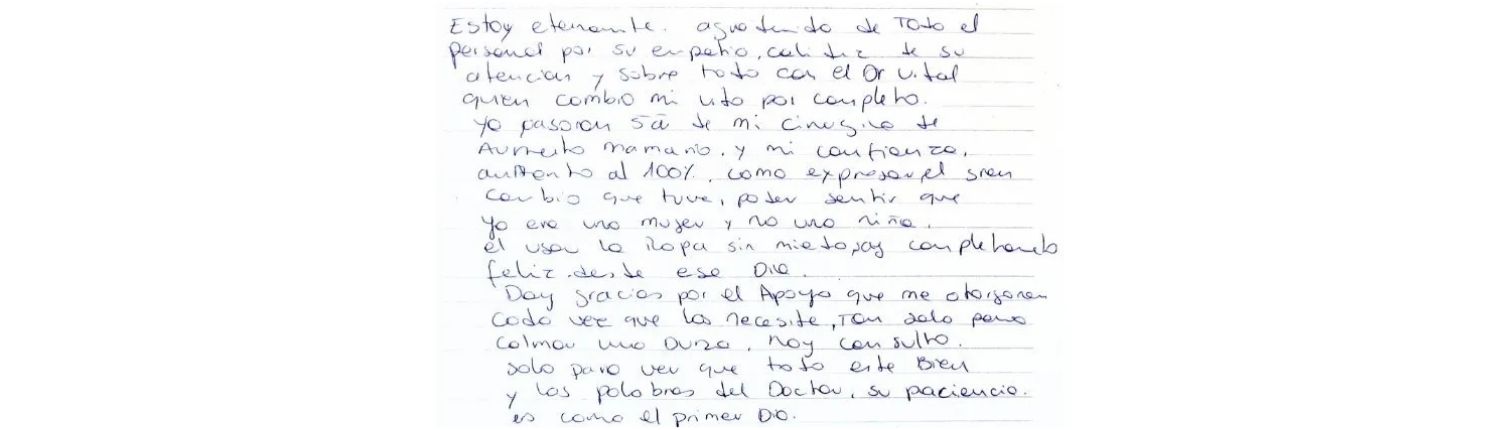 Estoy eternamte. agradecido de Todo el
personal por su empatia, calidez de su
atencion y sobre todo con el Dr Vital
quien cambio mi vida por completo.
ya pasaron 5a de mi cirugia de
Aumento mamario, y mi confianza,
aumento al 100%, como expresar el gran
cambio que tuve, poder sentir que
yo era una mujer y no una niña.
el usar la Ropa sin miedo, soy completamente
feliz desde ese Dia.
Doy gracias por el Apoyo que me otorgaron
cada vez que los necesite, Tan solo para
calmar una Duda, hoy consulto.
solo para ver que todo este Bien
y las palabras del Doctor, su paciencia.
es como el primer Dia.